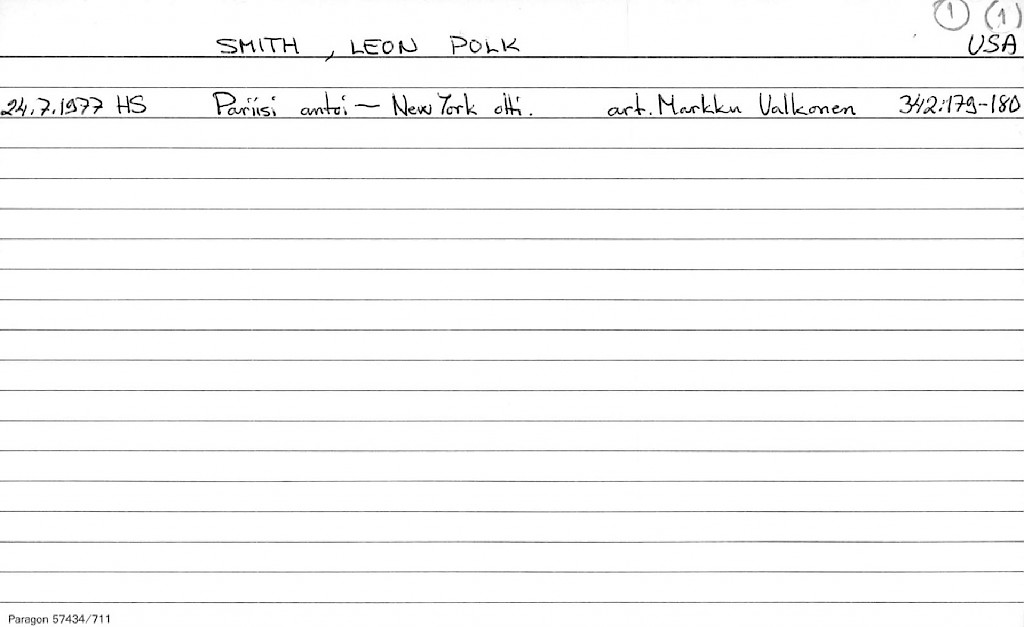 1 (1)
SMITH, LEON POLK USA
24.7.1977 HS Pariisi antoi — New York otti. art. Markku Valkonen 342:179-180
Paragon 57434/711